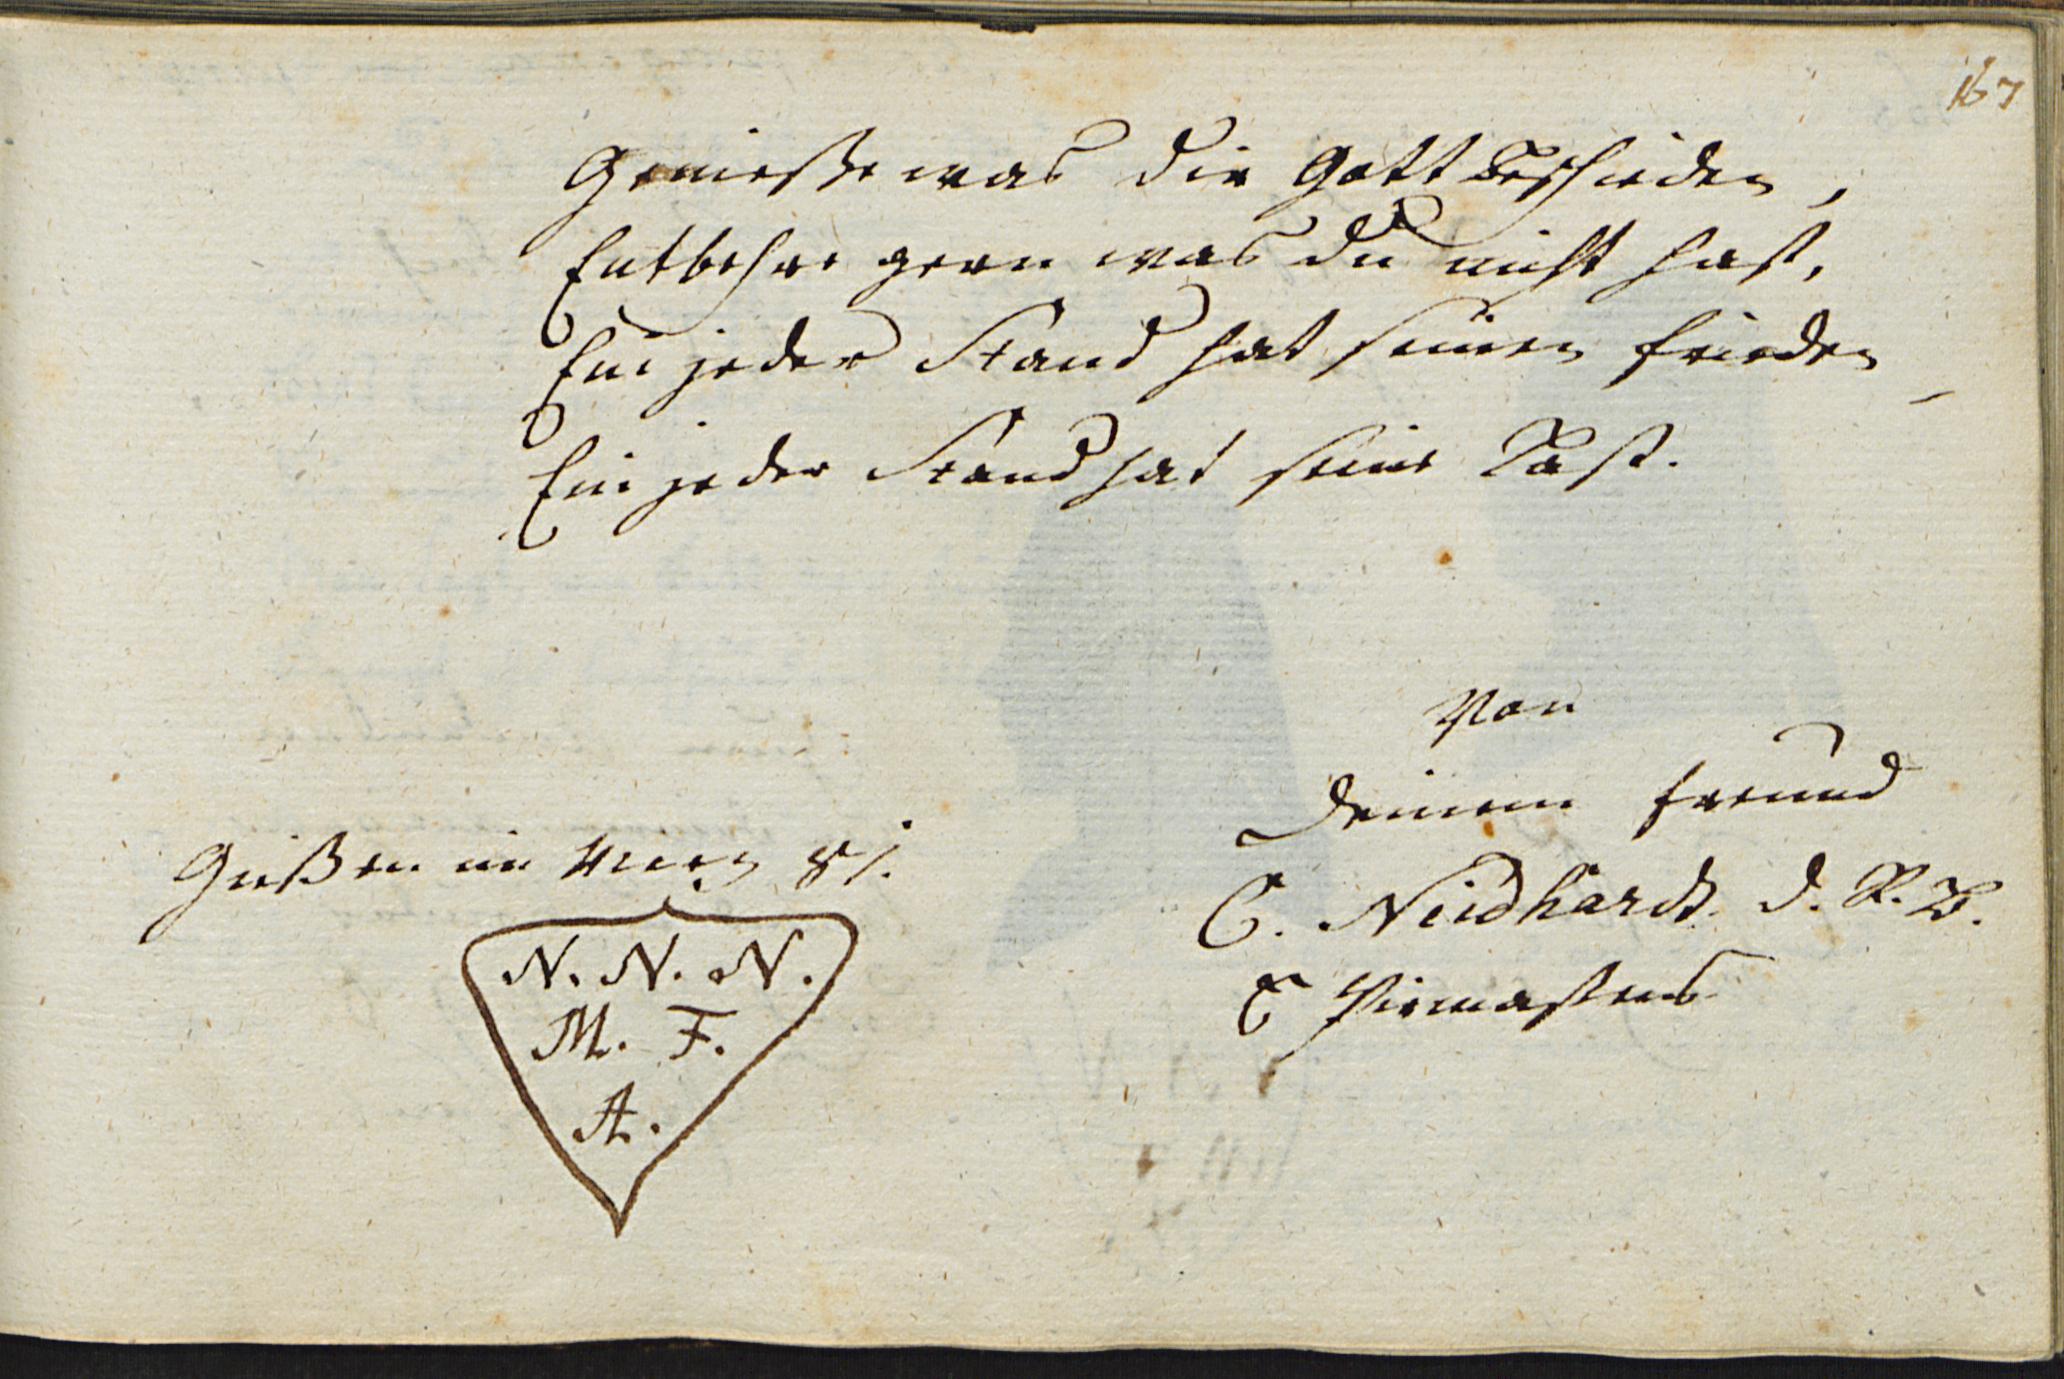 167
Genieße was dir Gott beschieden,
Entbehre gern was du nicht hast,
Ein jeder Stand hat seinen frieden,
Ein jeder Stand hat seine Last.
Von
Deinem freund
C. Neidhardt. d. R. B.
Pirmasens
Gießen im Merz 81.
N. N. N.
M. F.
A.